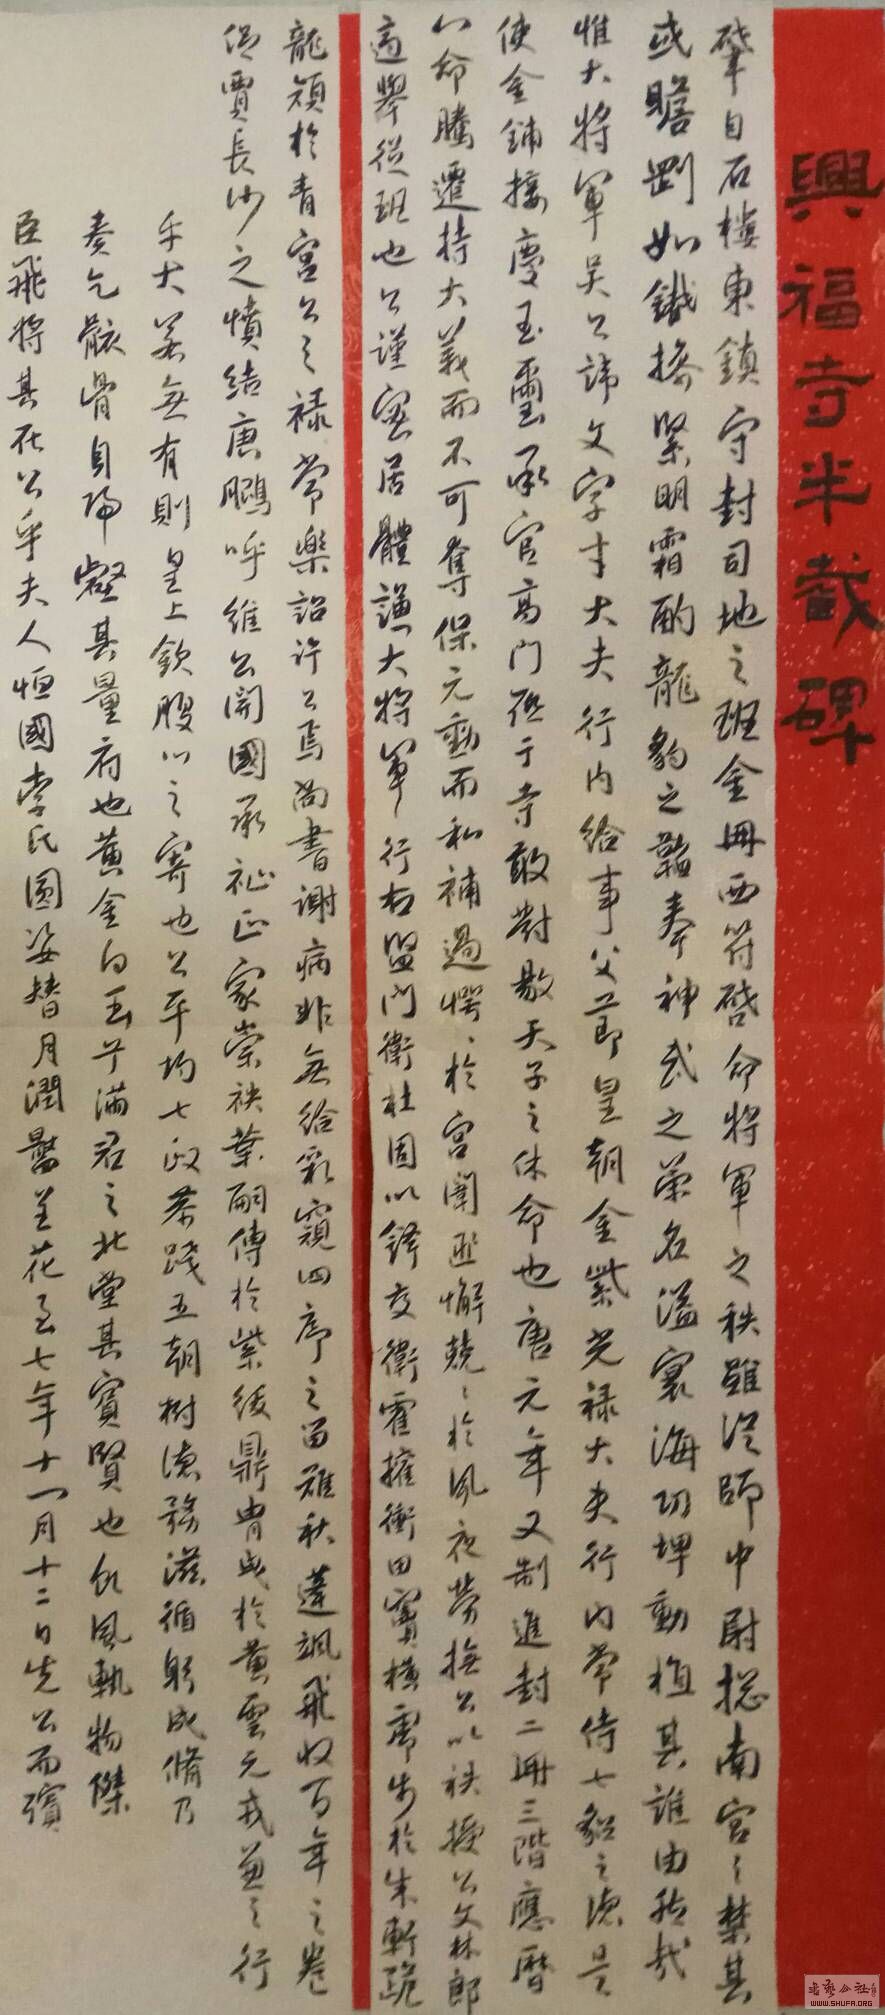 興福寺半截碑
肇自石樓東鎮守封司地之班金冊西符啓命將軍之秩雖從師中尉揔南宮之禁其
或瞻劉如鐵擠緊明霜酌龍豹之韜奉神武之榮名溢寰海功埤動植其誰由然哉
惟大將軍吳公諱文字才大夫行内給事父節皇朝金紫光禄大夫行内常侍七貂之德是
使金鋪接慶玉璽承官高門砥于寺敢對敭天子之休命也唐元年又制進封二冊三階應曆
以命騰遷持大義而不可奪保元勳而私補過愕〻於宮闈匪懈兢〻於夙夜勞撫公以秩授公文林郎
適舉從班也公謹密居體謙大將軍行右監門衛杜固以鋒交衛霍擁衝田竇橫席步於朱軒跪
龍頷於青宮公之禄常樂詔許公焉尚書謝病非無給彩窺四序之留雖秋蓬颯飛收百年之卷
侶賈長沙之憤結庚鵬呼維公開國承祉正家崇袟葉嗣傳於紫綬鼎胄成於黃雲元戎兼之行
乎大若無有則皇上欽股以之寄也公平均七政恭踐五朝樹德務滋循躬成脩乃
奏乞骸骨自歸壑其量府也黄金白玉方滿君之北堂其賓賢也飲風軌物傑
臣飛將其在公乎夫人恒國李氏圓姿替月潤臉呈花至七年十一月十二日先公而殯
書藝公社
WWW.SHUFA.ORG